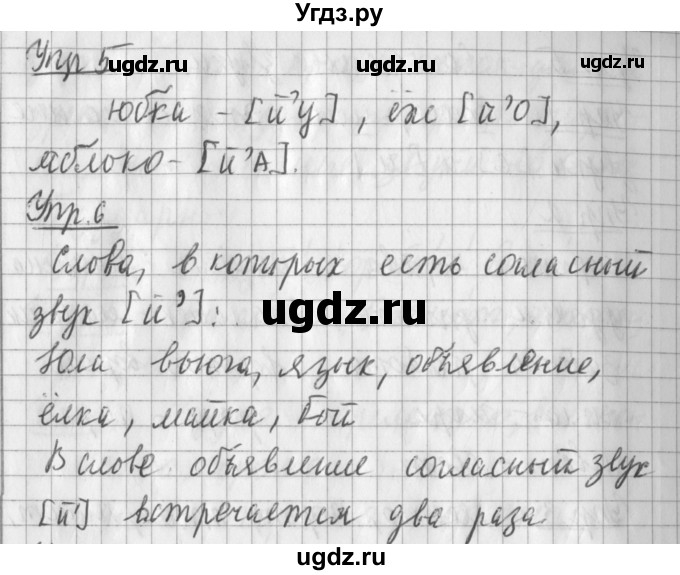 Угдз.ру
Упр 5
ugdz.ru ugdz.ru ugdz.ru
юбка - [й'у], ёж [й'О],
яблоко - [й'А].
Упр. 6
Слова, в которых есть согласный
звук [й']:
ugdz.ru
Юла вьюга, язык, объявление,
ёлка, майка, бой
В слове объявление согласный звук
ugdz.ru ugdz.ru ugdz.ru
[й'] встречается два раза
ugdz.ru